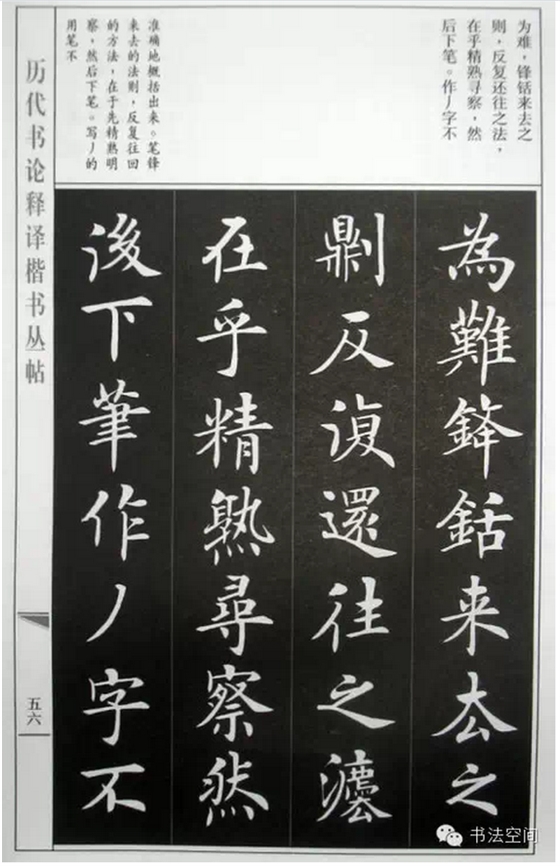 为难，锋铦来去之
则，反复还往之法，
在乎精熟寻察，然
后下笔。作丿字不
准确地概括出来。笔锋
来去的法则，反复往回
的方法，在于先精熟明
察，然后下笔。写丿的
用笔不
為難鋒銛来去之
剿反澓還往之灋
在乎精熟尋察然
後下筆作丿字不
历代书论释译楷书丛帖
五六
书法空间